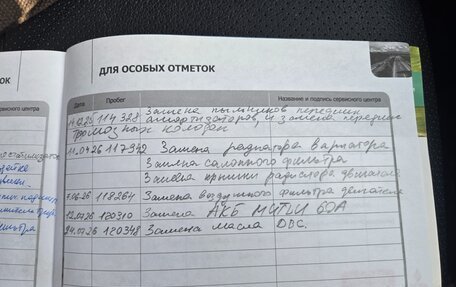 ОК
ДЛЯ ОСОБЫХ ОТМЕТОК
Дата Пробег Название и подпись сервисного центра
сервисного центра
Замена пыльников передних
114 328 амортизаторов, и замена передних
тормозных колодок
11.04.26 117 342 Замена радиатора вариатора
Замена салонного фильтра
Замена крышки радиатора двигателя
7.06.26 118264 Замена воздушного фильтра двигателя
12.07.26 120310 Замена АКБ MUTLU 60А
24.07.26 120348 Замена масла ДВС.